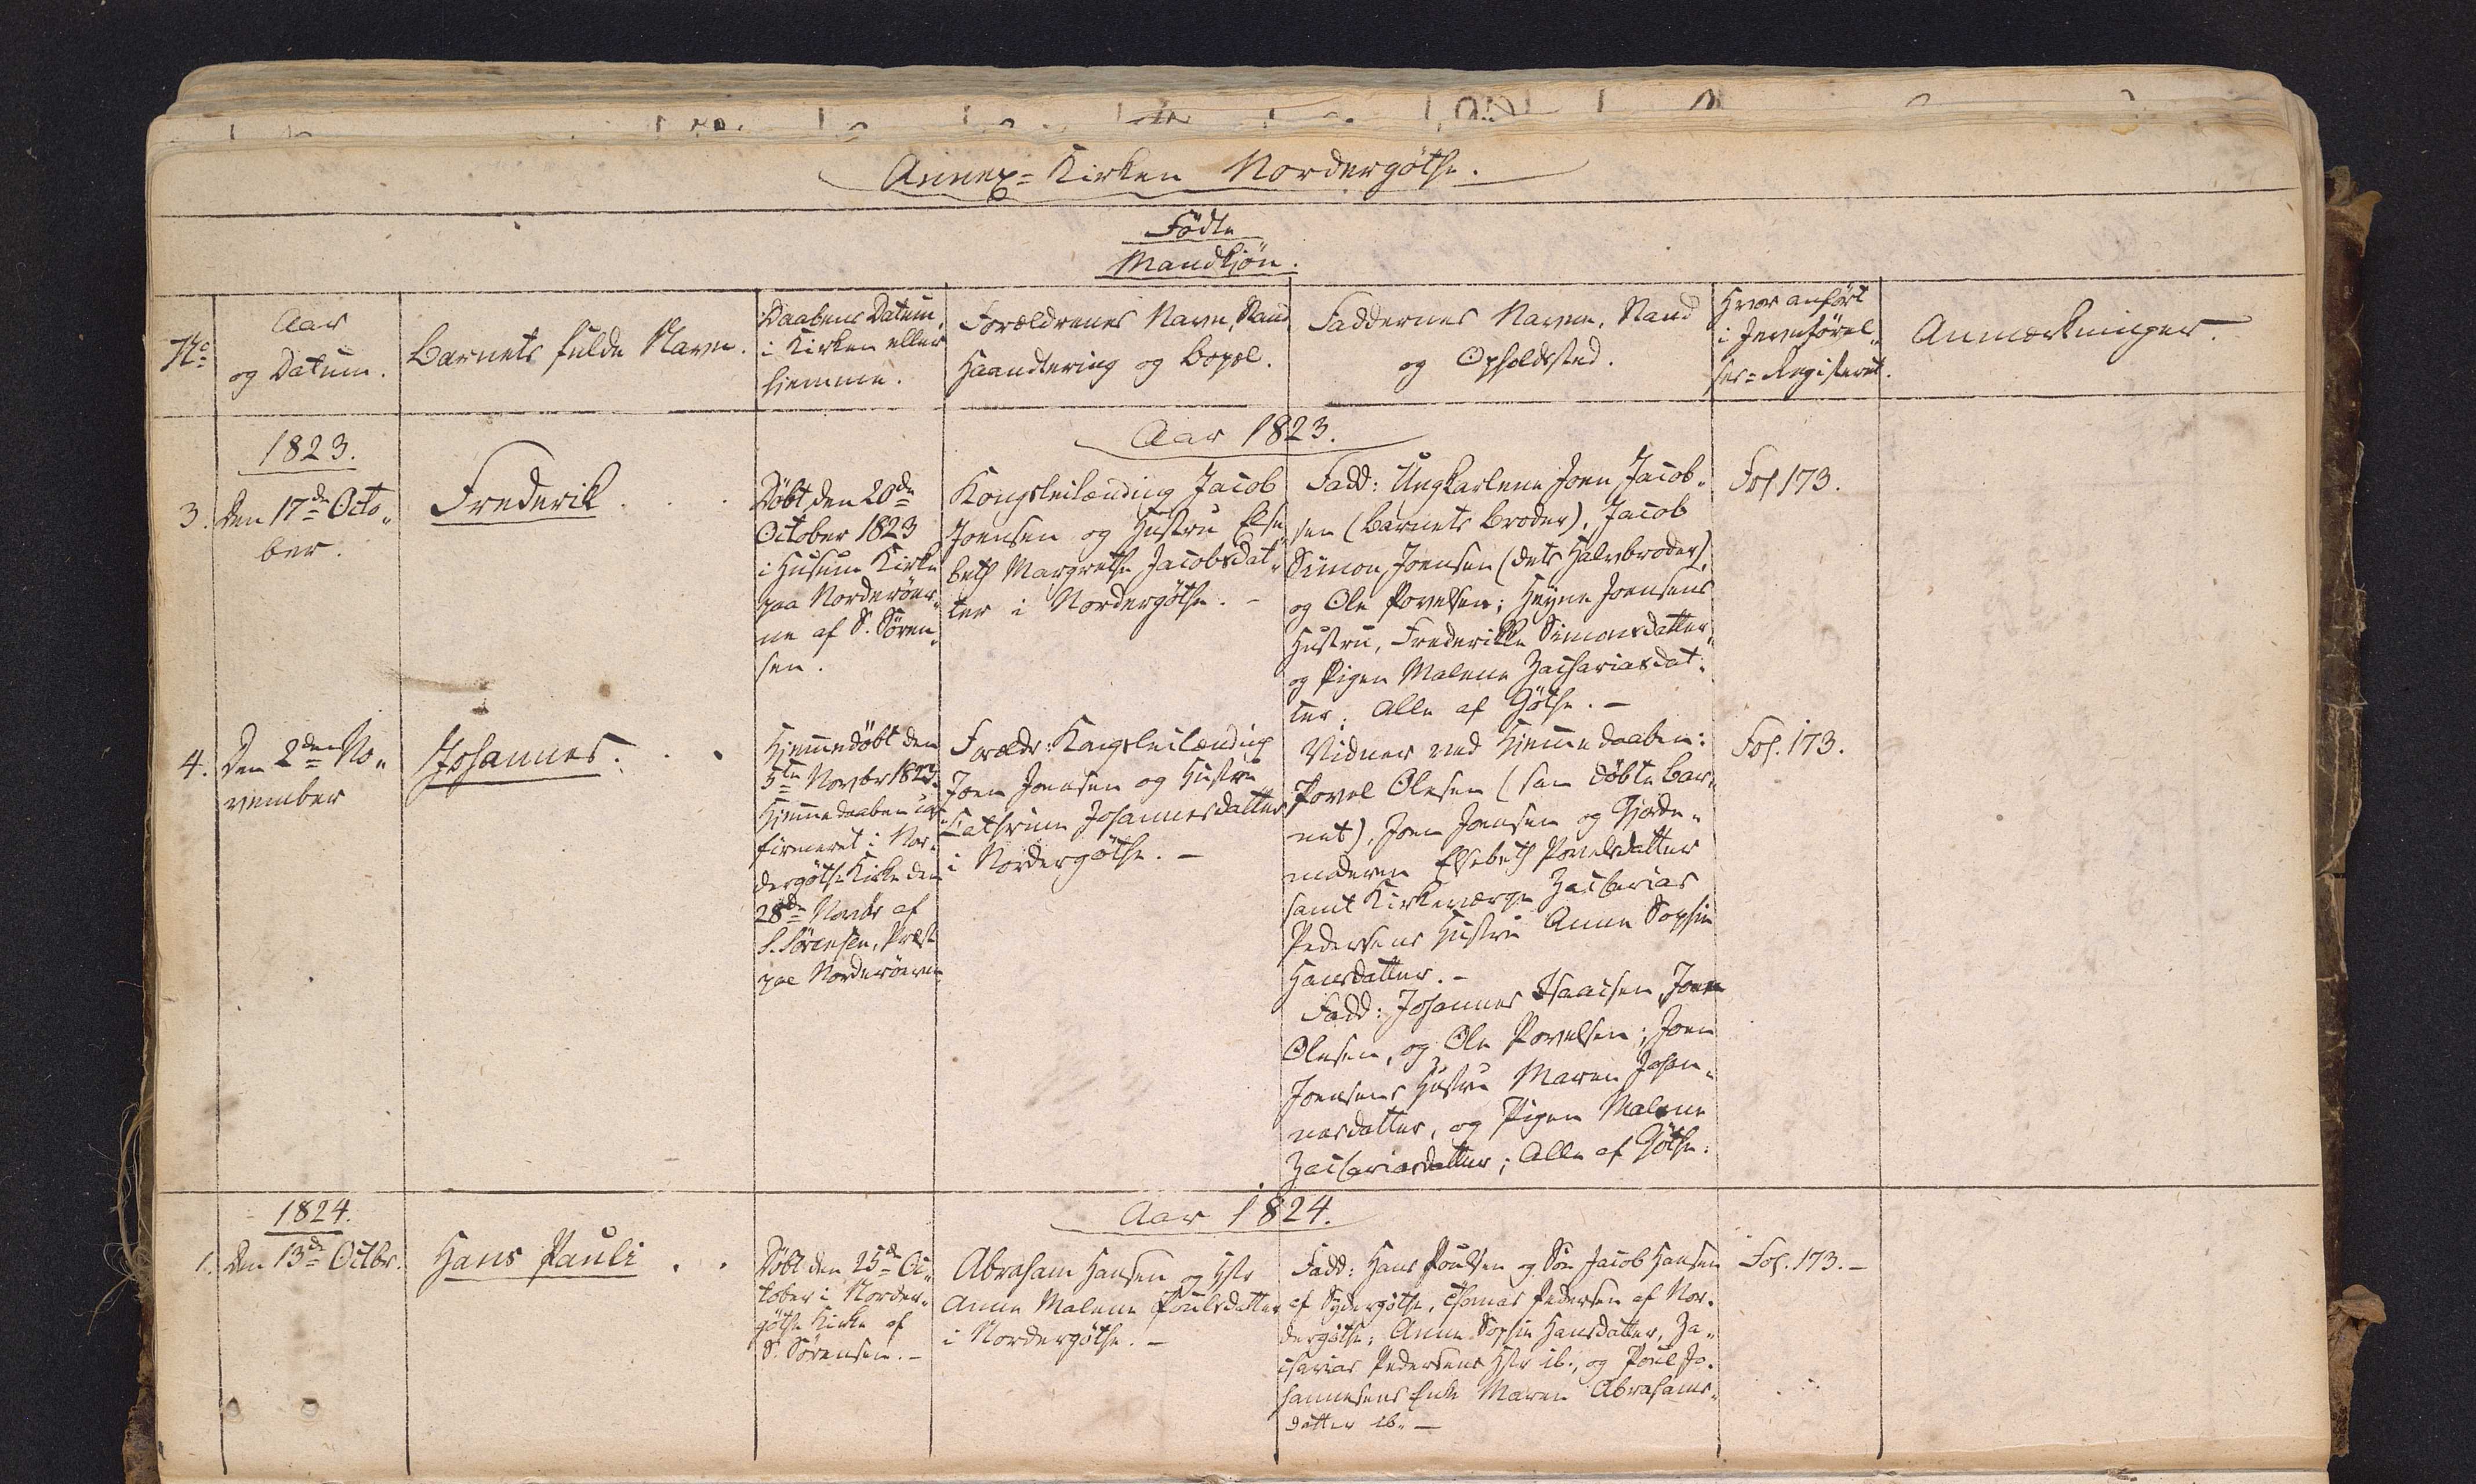 Annex=Kirken Nordergöthe.
Födte
Mandkjön.
No
Aar
og Datum.
Barnets fulde Navn.
Daabens Datum,
i Kirken eller
hjemme.
Forældrenes Navn, Stand
Haandtering og Bopæl.
Faddernes Navne, Stand
og Opholdssted.
Hvor anført
i Jevnförel„
ses=Registeret.
Anmærkninger.
Aar 1823.
1823.
3.
Den 17de Octo„
ber.
Frederik . . .
Döbt den 20de
October 1823
i Husum Kirke
paa Norderöer„
ne af S. Sören„
sen.
Kongsleilænding Jacob
Joensen og Hustru Else„
beth Margrethe Jacobsdat„
ter i Nordergöthe. -
Fadd: Ungkarlene Joen Jacob„
sen (Barnets Broder), Jacob
Simon Joensen (dets Halvbroder),
og Ole Povelsen; Heyne Joensens
Hustru, Frederikke Simonsdatter,
og Pigen Malene Zachariasdat„
ter; Alle af Göthe. -
Fol 173.
4.
Den 2den No„
vember
Johannes. . .
Hjemmedöbt den
5te Novbr 1823.
Hjemmedaaben con„
firmeret i Nor„
dergöthe Kirke den
28de Novbr af
S. Sörensen, Præst
paa Norderöerne
Forældr: Kongsleilænding
Joen Joensen og Hustru
Cathrine Johannesdatter
i Nordergöthe. -
Vidner ved Hjemmedaaben:
Povel Olesen (som döbte Bar„
net), Joen Joensen og Gjorde„
moderen Elsebeth Povelsdatter
samt Kirkeværge Zacharias
Pedersens Hustru Anne Sophie
Hansdatter. -
Fadd: Johannes Isaacsen, Joen
Olesen, og Ole Povelsen; Joen
Joensens Hustru Maren Johan„
nesdatter, og Pigen Malene
Zachariasdatter; Alle af Göthe.
Fol. 173.
Aar 1824.
1824.
1.
Den 13de Octbr.
Hans Pauli . .
Döbt den 25de Oc„
tober i Norder„
göthe Kirke af
S. Sörensen. -
Abraham Hansen og Hstr
Anne Malene Poulsdatter
i Nordergöthe. -
Fadd: Hans Poulsen og Sön Jacob Hansen
af Sydergöthe, Thomas Pedersen af Nor„
dergöthe; Anne Sophie Hansdatter, Za„
charias Pedersens Hstr ib., og Poul Jo„
hannesens Enke Maren Abrahams„
datter ib. -
Fol. 173. -